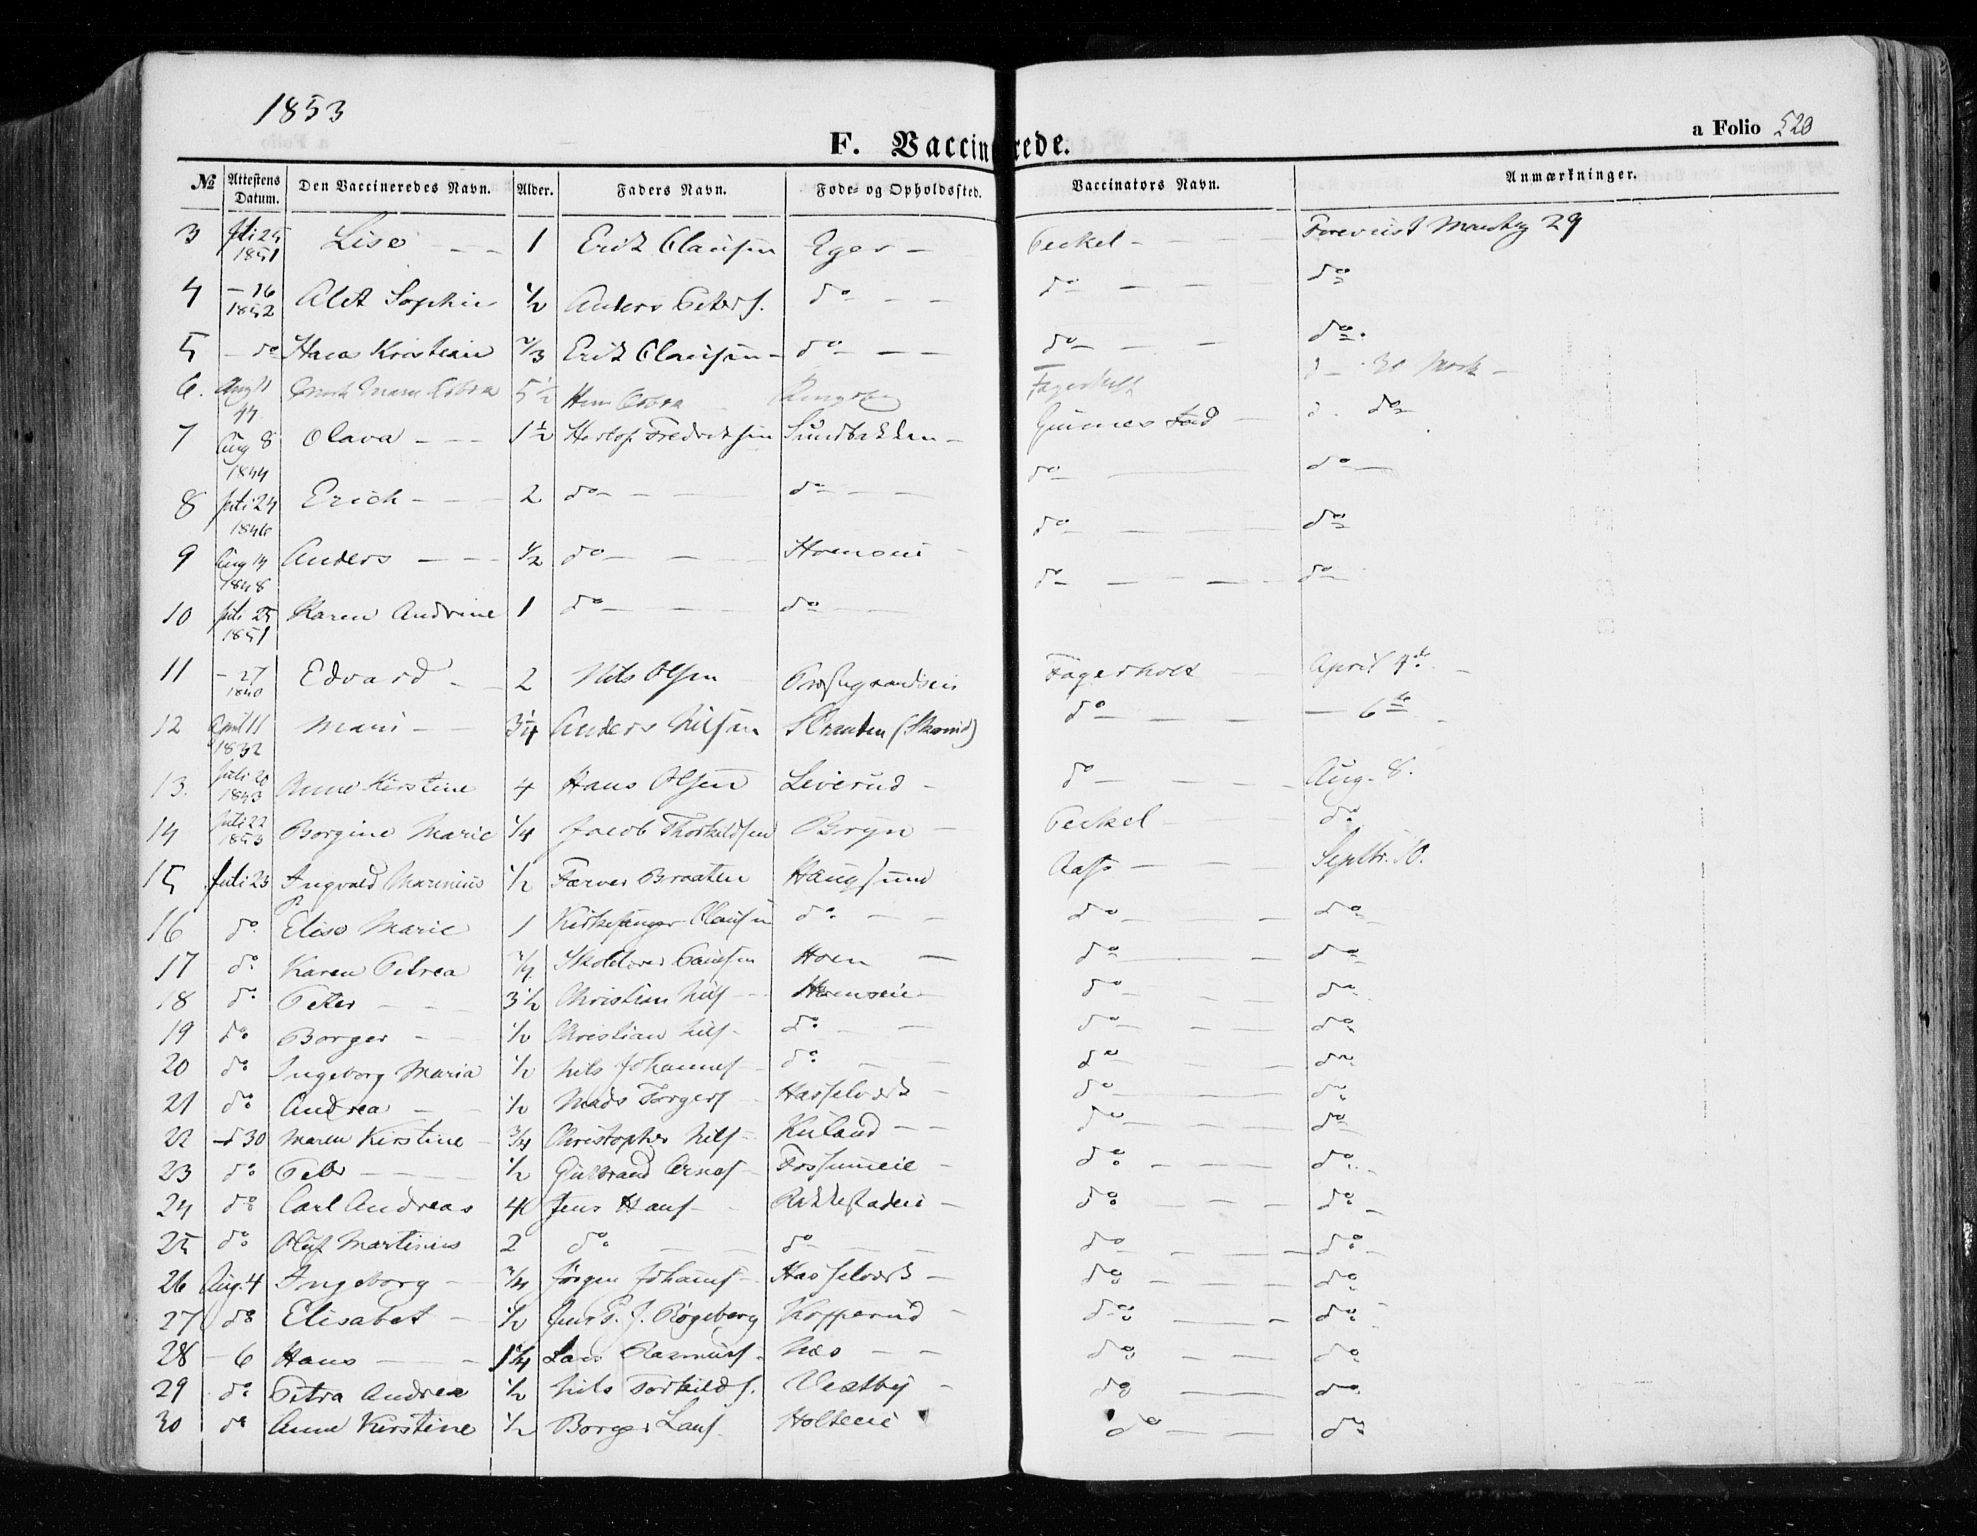 1853
F. Vaccinerede.
a Folio 520
№ Attestens Datum. Den Vaccineredes Navn. Alder. Faders Navn. Føde- og Opholdssted. Vaccinators Navn. Anmærkninger.
3 Juli 25 1851 Lise — — 1 Erik Clausen Eger — Peckel — Forevist 29
4 — 16 1852 Alet Sophie 1/2 Anders Peters. do — — do — — — do
5 — do Kristian 2/3 Erik Clausen — do — — do — — do
6. Aug 11 5 1/2 Fagerholt
7 Aug 8 1844 Olava — — 1 1/2 Fredriksen Sundbakken — do
8 Juli 24 1846 Erich — — 2 do — — do — — do — — do —
9 Aug 14 1848 Anders — — 1/2 do — — do — — do
10 Juli 25 1851 Karen Andrine 1 do — — do — — do — — do
11 — 27 1840 Edvard — 2 Nils Olsen Fagerholt April 4de
12 April 11 1832 Mari — 3 1/4 Anders Nilsen Braaten do — — — 6te
13. Juli 20 1853 Anne Kirstine 4 Hans Olsen Leverud — do — — Aug. 8.
14 Juli 22 1853 Borgine Marie 1/4 Jacob Thorkildsen Bryn — Peckel — do
15 Juli 23 Ingvald Marinius 1/2 Farver Braaten Haugsund Aass — — Septbr. 10.
16 do Elise Marie 1 Kirkesanger Clausen do — — do — — do
17 do Karen Petrea 3/4 Skolelærer Hoen — do — — do
18 do Peter — — 3 1/2 Christian Nils — Hoenseie — do — — do
19 do Borger — 1/2 Christian Nils — do — — do — — do
20 do Ingeborg Maria 1/2 Nils Johannes — do — — do — — do
21 do Andrea — — 1/2 Mads Torgers — Hasselværk — do — — do
22 — d 30 Maren Kirstine — 3/4 Christopher Nils — do — — do
23 do Peder — — 1/2 Gulbrand Fossumeie — do — — do
24 do Carl Andreas 4 Jens Hans — Rikkestadeie — do — — do
25 do Oluf Martinius 2 do — — do — — do — — do
26 Aug. 4 Ingeborg — 3/4 Jørgen Johannes — Hasselværk — do — — do
27 do Elisabet — 1/2 J. Røgeberg Kopperud — do — — do
28 — 6 Hans — — 1 1/4 Lars Rasmus — Næs — — do — — do
29 do Petra Andrea 1/2 Nils Torkilds. Vestby — do — — do
30 do Anne Kirstine 1/2 Borger Lars. Holteeie do — — do